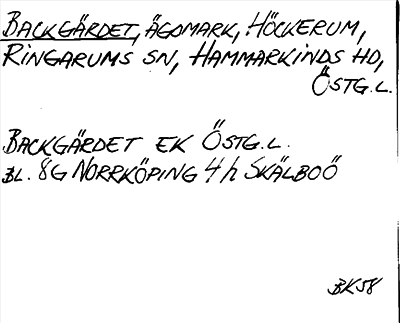 BACKGÄRDET, ÄGOMARK, HÖCKERUM,
RINGARUMS SN, HAMMARKINDS HD,
ÖSTG.L.
BACKGÄRDET EK ÖSTG.L.
BL. 8G NORRKÖPING 4h SKÄLBOÖ
BK58